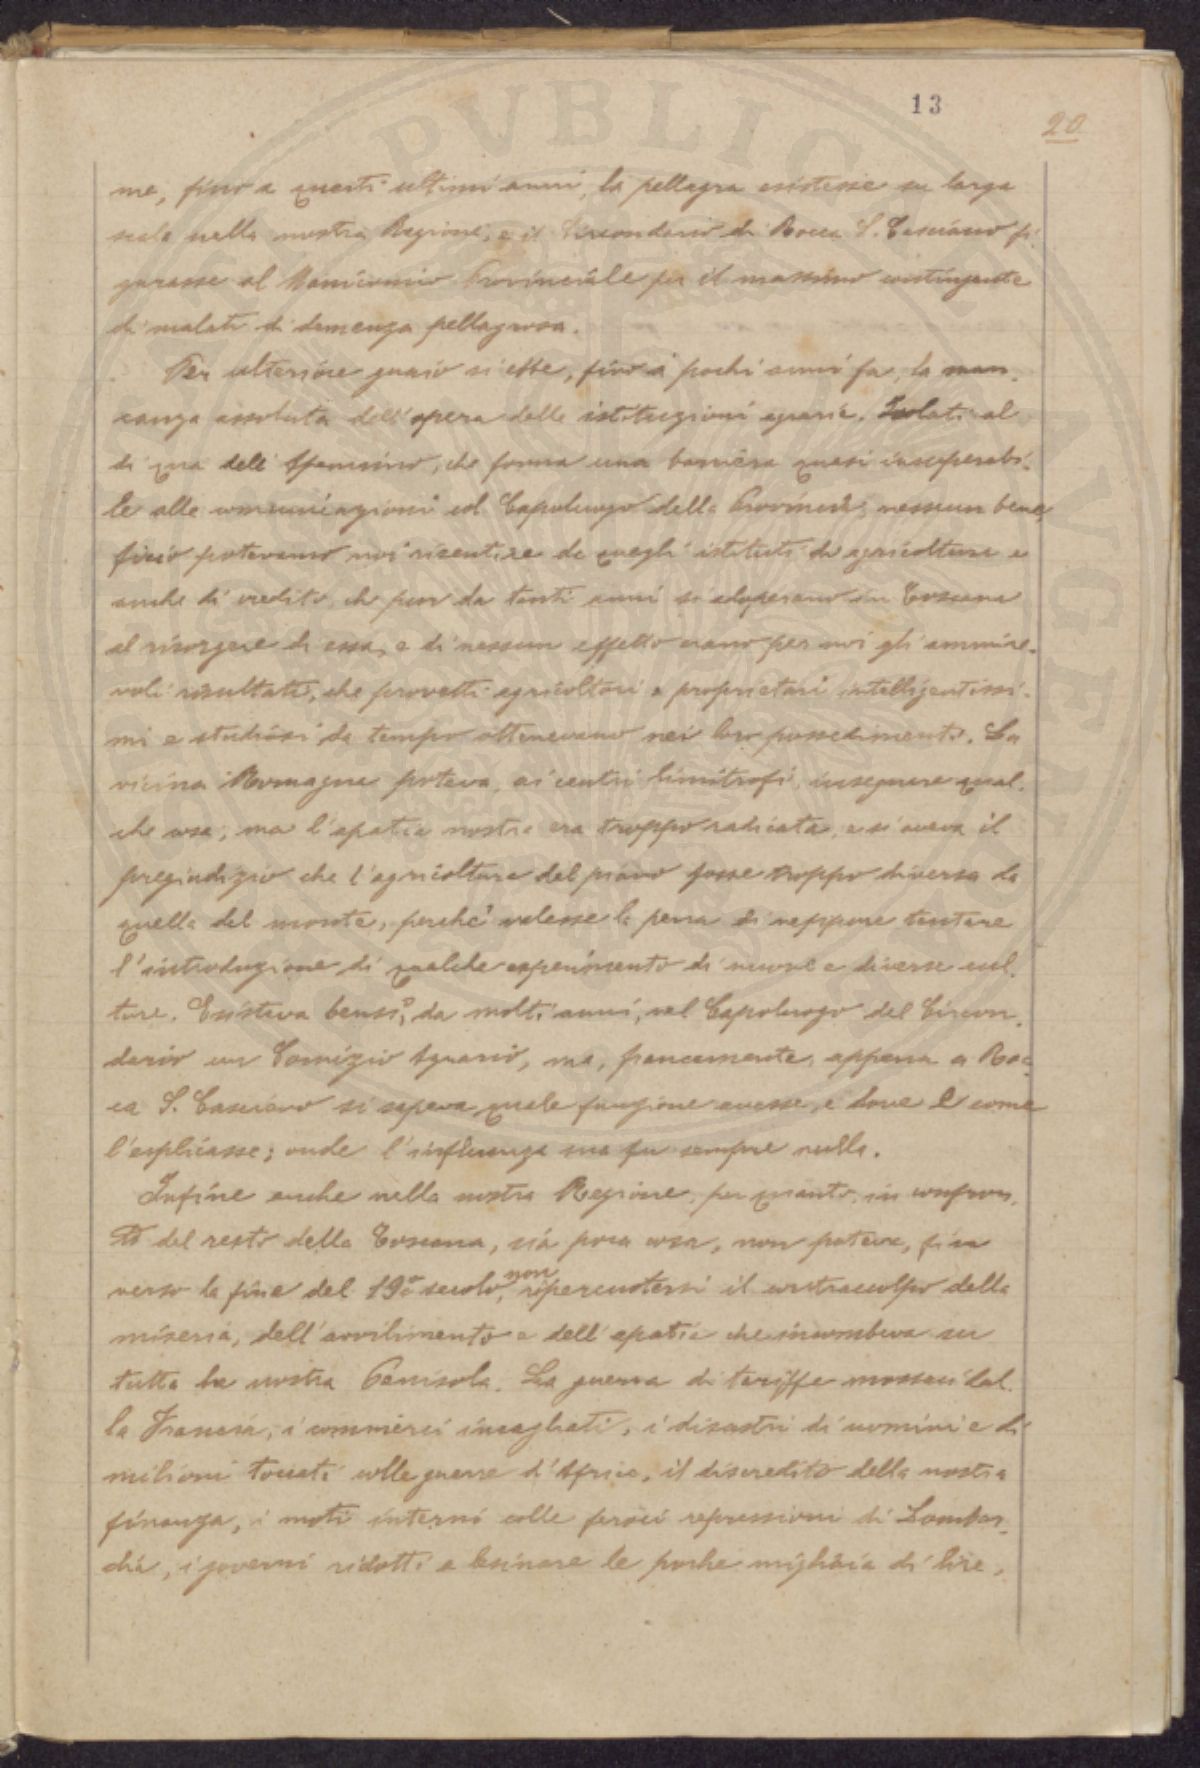 13
20
me, fino a questi ultimi anni, la pellagra esistesse su larga
scala nella nostra Regione, e il Circondario di Rocca S. Casciano fi-
gurasse al Manicomio Provinciale per il massimo contingente
di malati di demenza pellagrosa.
Per ulteriore guaio si ebbe, fino a pochi anni fa, la man-
canza assoluta dell'opera delle istituzioni agrarie. Isolati al
di qua dell'Apennino, che forma una barriera quasi insuperabi-
le alle comunicazioni col Capoluogo della Provincia, nessun bene-
ficio potevamo noi risentire da quegli istituti di agricoltura e
anche di credito che pur da tanti anni si adoperano in Toscana
al risorgere di essa, e di nessun effetto erano per noi gli ammire-
voli risultati, che provetti agricoltori e proprietari intelligentissi-
mi e studiosi da tempo ottenevano nei loro possedimenti. La
vicina Romagna poteva, ai centri limitrofi, insegnare qual-
che cosa; ma l'apatia nostra era troppo radicata, e si aveva il
pregiudizio che l'agricoltura del piano fosse troppo diversa da
quella del monte, perchè valesse la pena di neppure tentare
l'introduzione di qualche esperimento di nuove e diverse cul-
ture. Esisteva bensì, da molti anni, nel Capoluogo del Circon-
dario un Comizio Agrario, ma, francamente, appena a Roc-
ca S. Casciano si sapeva quale funzione avesse, e dove e come
l'esplicasse; onde l'influenza sua fu sempre nulla.
Infine anche nella nostra Regione, per quanto, in confron-
to del resto della Toscana, sia poca cosa, non poteva, fin
verso la fine del 19º secolo, non ripercuotersi il contraccolpo della
miseria, dell'avvilimento e dell'apatia che incombeva su
tutta la nostra Penisola. La guerra di tariffe mossaci dal-
la Francia, i commerci incagliati, i disastri di uomini e di
milioni toccati colle guerre d'Africa, il discredito della nostra
finanza, i moti interni colle feroci repressioni di Lombar-
dia, i governi ridotti a lesinare le poche migliaia di lire,